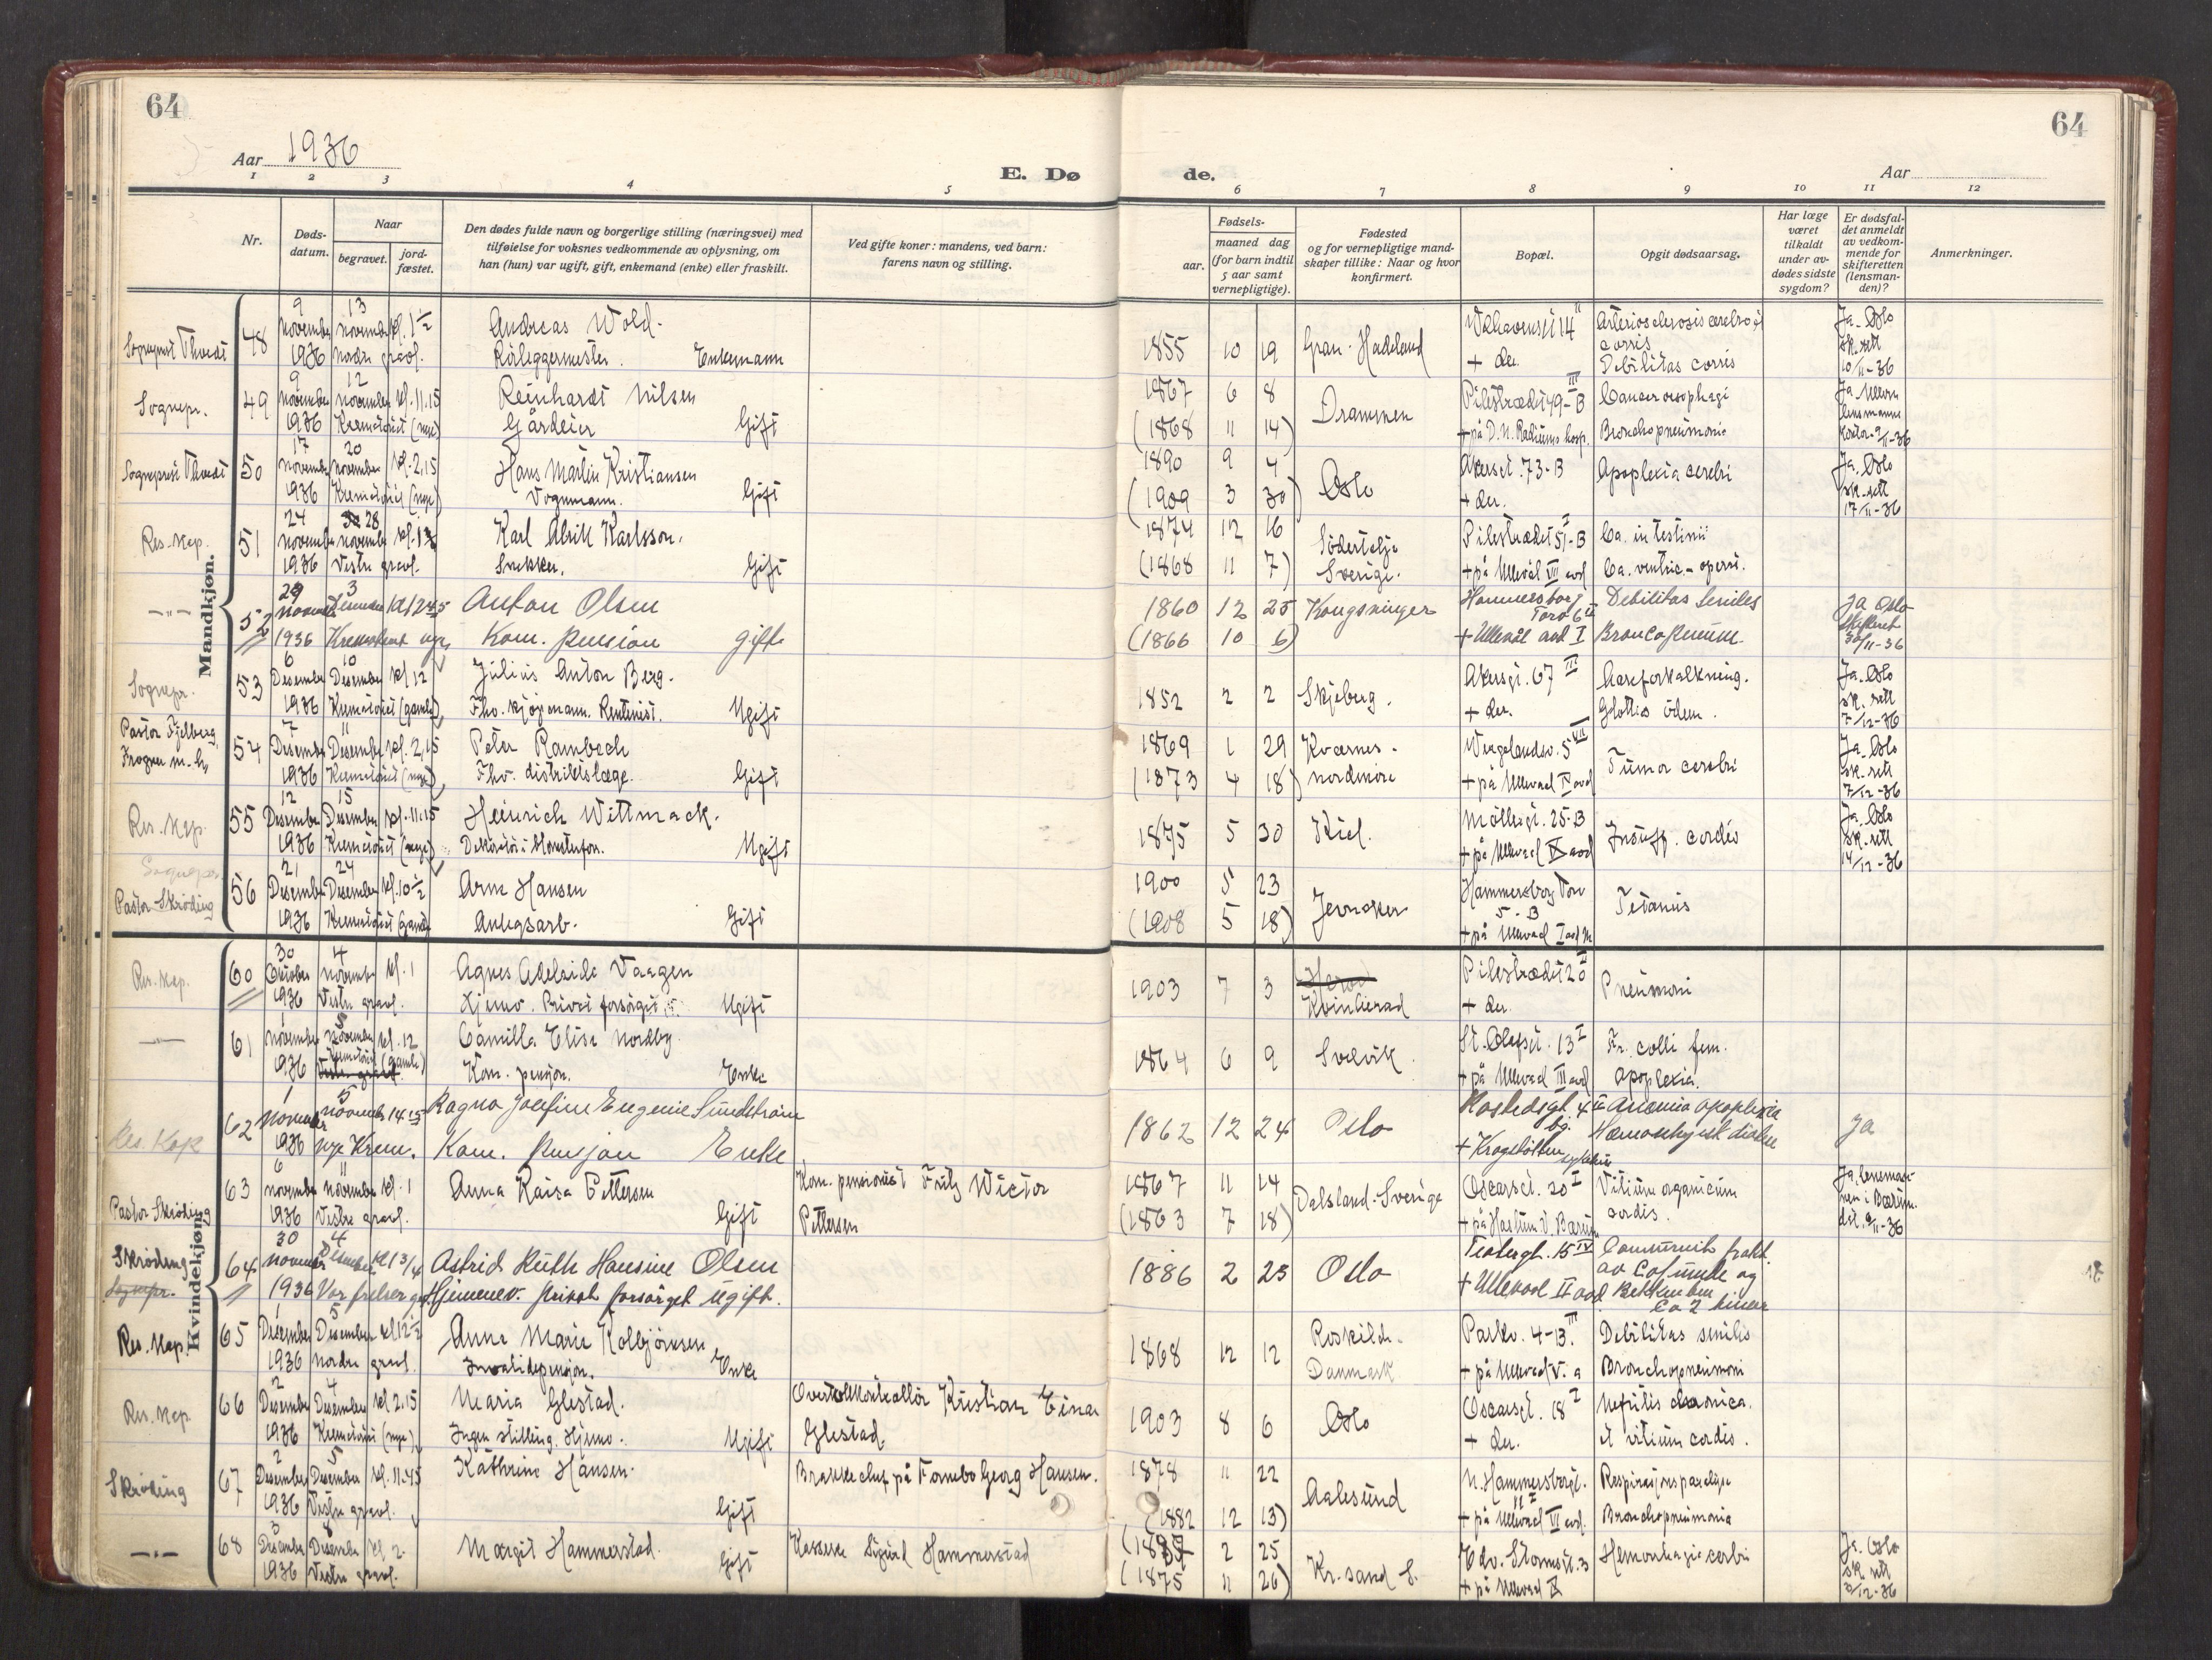 64
64
Aar 1936
E. Dø
de.
Aar
1 2 3 4 5 6 7 8 9 10 11 12
Nr.
Døds-
datum.
Naar
begravet.
jord-
fæstet.
Den dødes fulde navn og borgerlige stilling (næringsvei) med
tilføielse for voksnes vedkommende av oplysning, om
han (hun) var ugift, gift, enkemand (enke) eller fraskilt.
Ved gifte koner: mandens, ved barn:
farens navn og stilling.
Fødsels-
aar.
maaned dag
(for barn indtil
5 aar samt
vernepligtige).
Fødested
og for vernepligtige mand-
skaper tillike: Naar og hvor
konfirmert.
Bopæl.
Opgit dødsaarsag.
Har læge
været
tilkaldt
under av-
dødes sidste
sygdom?
Er dødsfal-
det anmeldt
av vedkom-
mende for
skifteretten
(lensman-
den)?
Anmerkninger.
Mandkjøn.
Sogneprest Thvedt 48 9 november 1936 13 november kl. 1 1/2 nordre gravl.
Andreas Wold.
Rörleggermester. Enkemann
1855 10 19 Gran. Hadeland
14 II + der.
Arteriosclerosis cerebro &
cordis
Debilitas cordis
Ja. Oslo
sk. rett
10/11-36
Sognepr. 49 9 november 1936 12 november kl. 11.15 Krematoriet (nye)
Reinhardt Nilsen
Gårdeier Gift
1867 6 8
(1868 11 14)
Drammen
Pilestredet 49-B III
+ på D. N. Radiums hosp.
Cancer oesophagi
Bronchopneumonie
Ja. Ullern
lensmanns
kontor 9/11-36
Sogneprest Thvedt 50 17 november 1936 20 november kl. 2,15 Krematoriet (nye)
Hans Martin Kristiansen
Vognmann. Gift
1890 9 4
(1909 3 30)
Oslo
Akersgt. 73-B
+ der.
Apoplexia cerebri
Ja. Oslo
sk. rett
17/11-36
Res. kap. 51 24 november 1936 28 november Vestre gravl.
Karl Alrik Karlsson.
Snekker. Gift
1874 12 16
(1868 11 7)
Södertelje
Sverige.
Pilestredet 51-B I
+ på Ullevål VIII avd
Ca. intestinii
Ca. ventric. - opert.
-"- 52 29 november 1936 3 Desember kl 12 45 Krematoriet nye
Anton Olsen
Kom. pension gift
1860 12 25
(1866 10 6)
Kongsvinger
Hammersborg
Torv 6 II
+ Ullevål avd I
Debilitas Seniles
Broncopneum.
Ja Oslo
skifteret
30/11-36
Sognepr. 53 6 Desember 1936 10 Desember kl 12 Krematoriet (gamle)
Julius Anton Berg.
Fhv. kjøpmann. Rentenist. Ugift
1852 2 2 Skjeberg.
Akersgt. 67 III
+ der.
Aareforkalkning.
Glottis ödem.
Ja. Oslo
sk. rett
7/12-36
Pastor Fjelberg
Frogner m-h. 54 7 Desember 1936 11 Desember kl. 2,15 Krematoriet (nye)
Peter Rambech
Fhv. distriktslæge. Gift
1869 1 29
(1873 4 18)
Kvernes.
nordmöre
Wergelandsv. 5 VII
+ på Ullevaal IV avd
Tumor cerebri
Ja. Oslo
sk. rett
7/12-36
Res. kap. 55 12 Desember 1936 15 Desember kl. 11.15 Krematoriet (nye)
Heinrich Wittmack.
Ugift
1875 5 30 Kiel.
Möllergt. 25-B
+ på Ullevaal IX avd
Insuff. cordis
Ja. Oslo
sk. rett
14/12-36
Sognepr.
Pastor Skröding 56 21 Desember 1936 24 Desember kl. 10 1/2 Krematoriet (gamle)
Arne Hansen
Anlegsarb. Gift
1900 5 23
(1908 5 18)
Jevnaker
Hammersborg Torv
5-B
+ på Ullevaal I avd M
Tetanus
Kvindekjøn.
Res. kap. 60 30 Oktober 1936 4 november kl. 1 Vestre gravl.
Agnes Adelaide Vaagen
Hjemv. Privat forsörget. Ugift
1903 7 3
Kvinherad
Pilestredet 20 II
+ der.
Pneumoni
-"- 61 1 november 1936 5 november kl. 12 Krematoriet (gamle)
Vestre gravl.
Camilla Elise Nordby
Kom. pensjon. Enke
1864 6 9 Svelvik.
St. Olafsgt. 13 I
+ på Ullevaal III avd
Fr. colli fem.
Apoplexia.
Res. Kap 62 1 November 1936 5 november 14 15 nye Krem.
Ragna Josefine Eugenie Sundström
Kom. Pensjon Enke
1862 12 24 Oslo
+ Krogstötten sykehus
Ja
Pastor Skröding 63 6 november 1936 11 november kl. 1 Vestre gravl.
Anna Kaisa Pettersen
Gift
Kom. pensionist Fritz Wictor
Pettersen
1867 11 14
(1863 7 18)
Dalsland. Sverige
Oscarsgt. 20 I
+ på Haslum V. Bærum
Vitium organicum
cordis.
Ja, lensman-
nen i Bærum.
dat. 9/11-36
Skröding
Sognepr. 64 30 november 1936 4 Desember kl 13/4 Vor frelser gr.
Astrid Ruth Hansine Olsen
Hjemmev. privat forsörget ugift.
1886 2 23 Oslo
15 IV
+ Ullevaal II avd
av Columna og
Bekken ben
Ca 2 timer
Res. Kap. 65 1 Desember 1936 5 Desember kl 12 1/2 nordre gravl.
Anne Marie Kolbjörnsen
Invalidepensjon. Enke
1868 12 12
Roskilde.
Danmark
Parkv. 4-B. III
+ på Ullevaal V. a
Debilitas senilis
Bronchopneumoni
Res. kap. 66 2 Desember 1936 4 Desember kl 2.15 Krematoriet (nye)
Maria Glestad.
Ingen stilling. Hjemv. Ugift
Overtollkontrollör Kristian Einar
Glestad.
1903 8 6 Oslo
Oscarsgt. 18 I
+ der.
Nefritis chronica.
& vitium cordis.
Skröding 67 2 Desember 1936 5 Desember kl. 11.45 Vestre gravl.
Kathrine Hansen.
Gift
Brakkechef på Fornebo Georg Hansen.
1878 11 22
(1882 12 13)
Aalesund
N. Hammersborggt.
11 I
+ på Ullevaal VI avd.
Respirasjonsparalyse
Bronchopneumonia
-"- 68 3 Desember 1936 8 Desember kl 2. Vestre gravl.
Margit Hammerstad.
Gift
Kasserer Sigurd Hammerstad
2 25
(1875 11 26)
Kr. sand S.
Edv. Stormsgt. 3
+ på Ullevaal IX
Hemorrhagia cerebri
Ja. Oslo
sk. rett
3/12-36